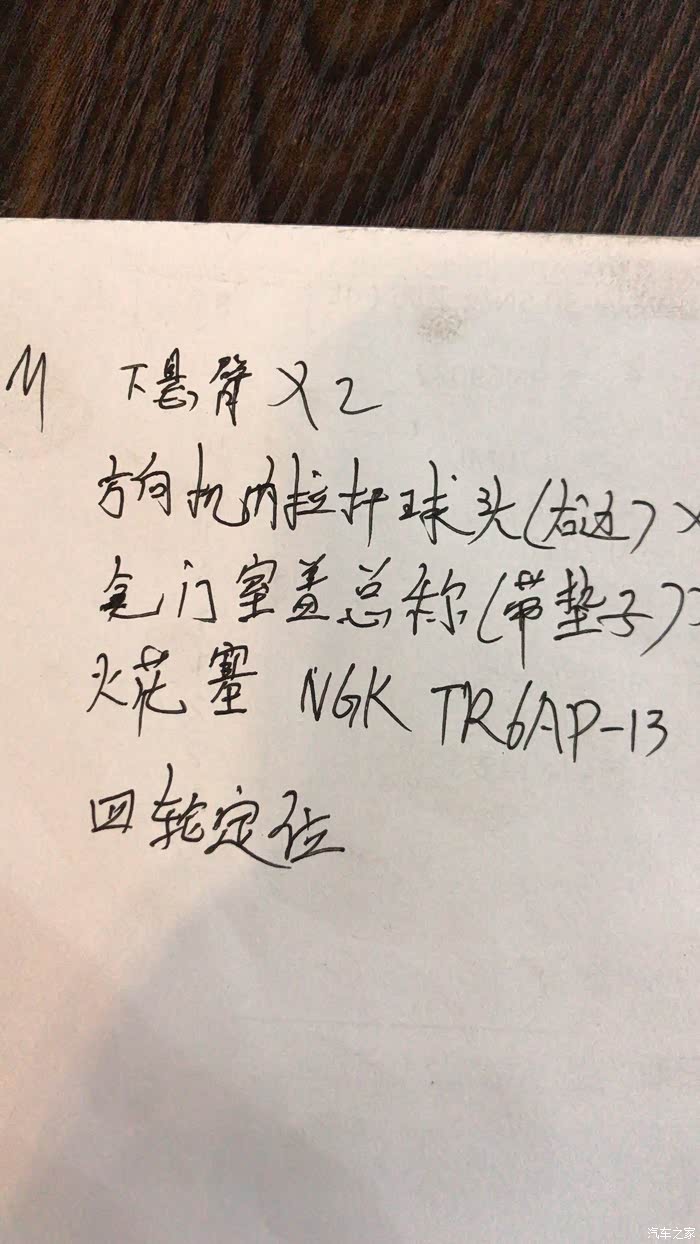 下悬臂 X 2
方向机内拉杆球头(右边) X
气门室盖总称(带垫子)
火花塞 NGK TR6AP-13
四轮定位
汽车之家